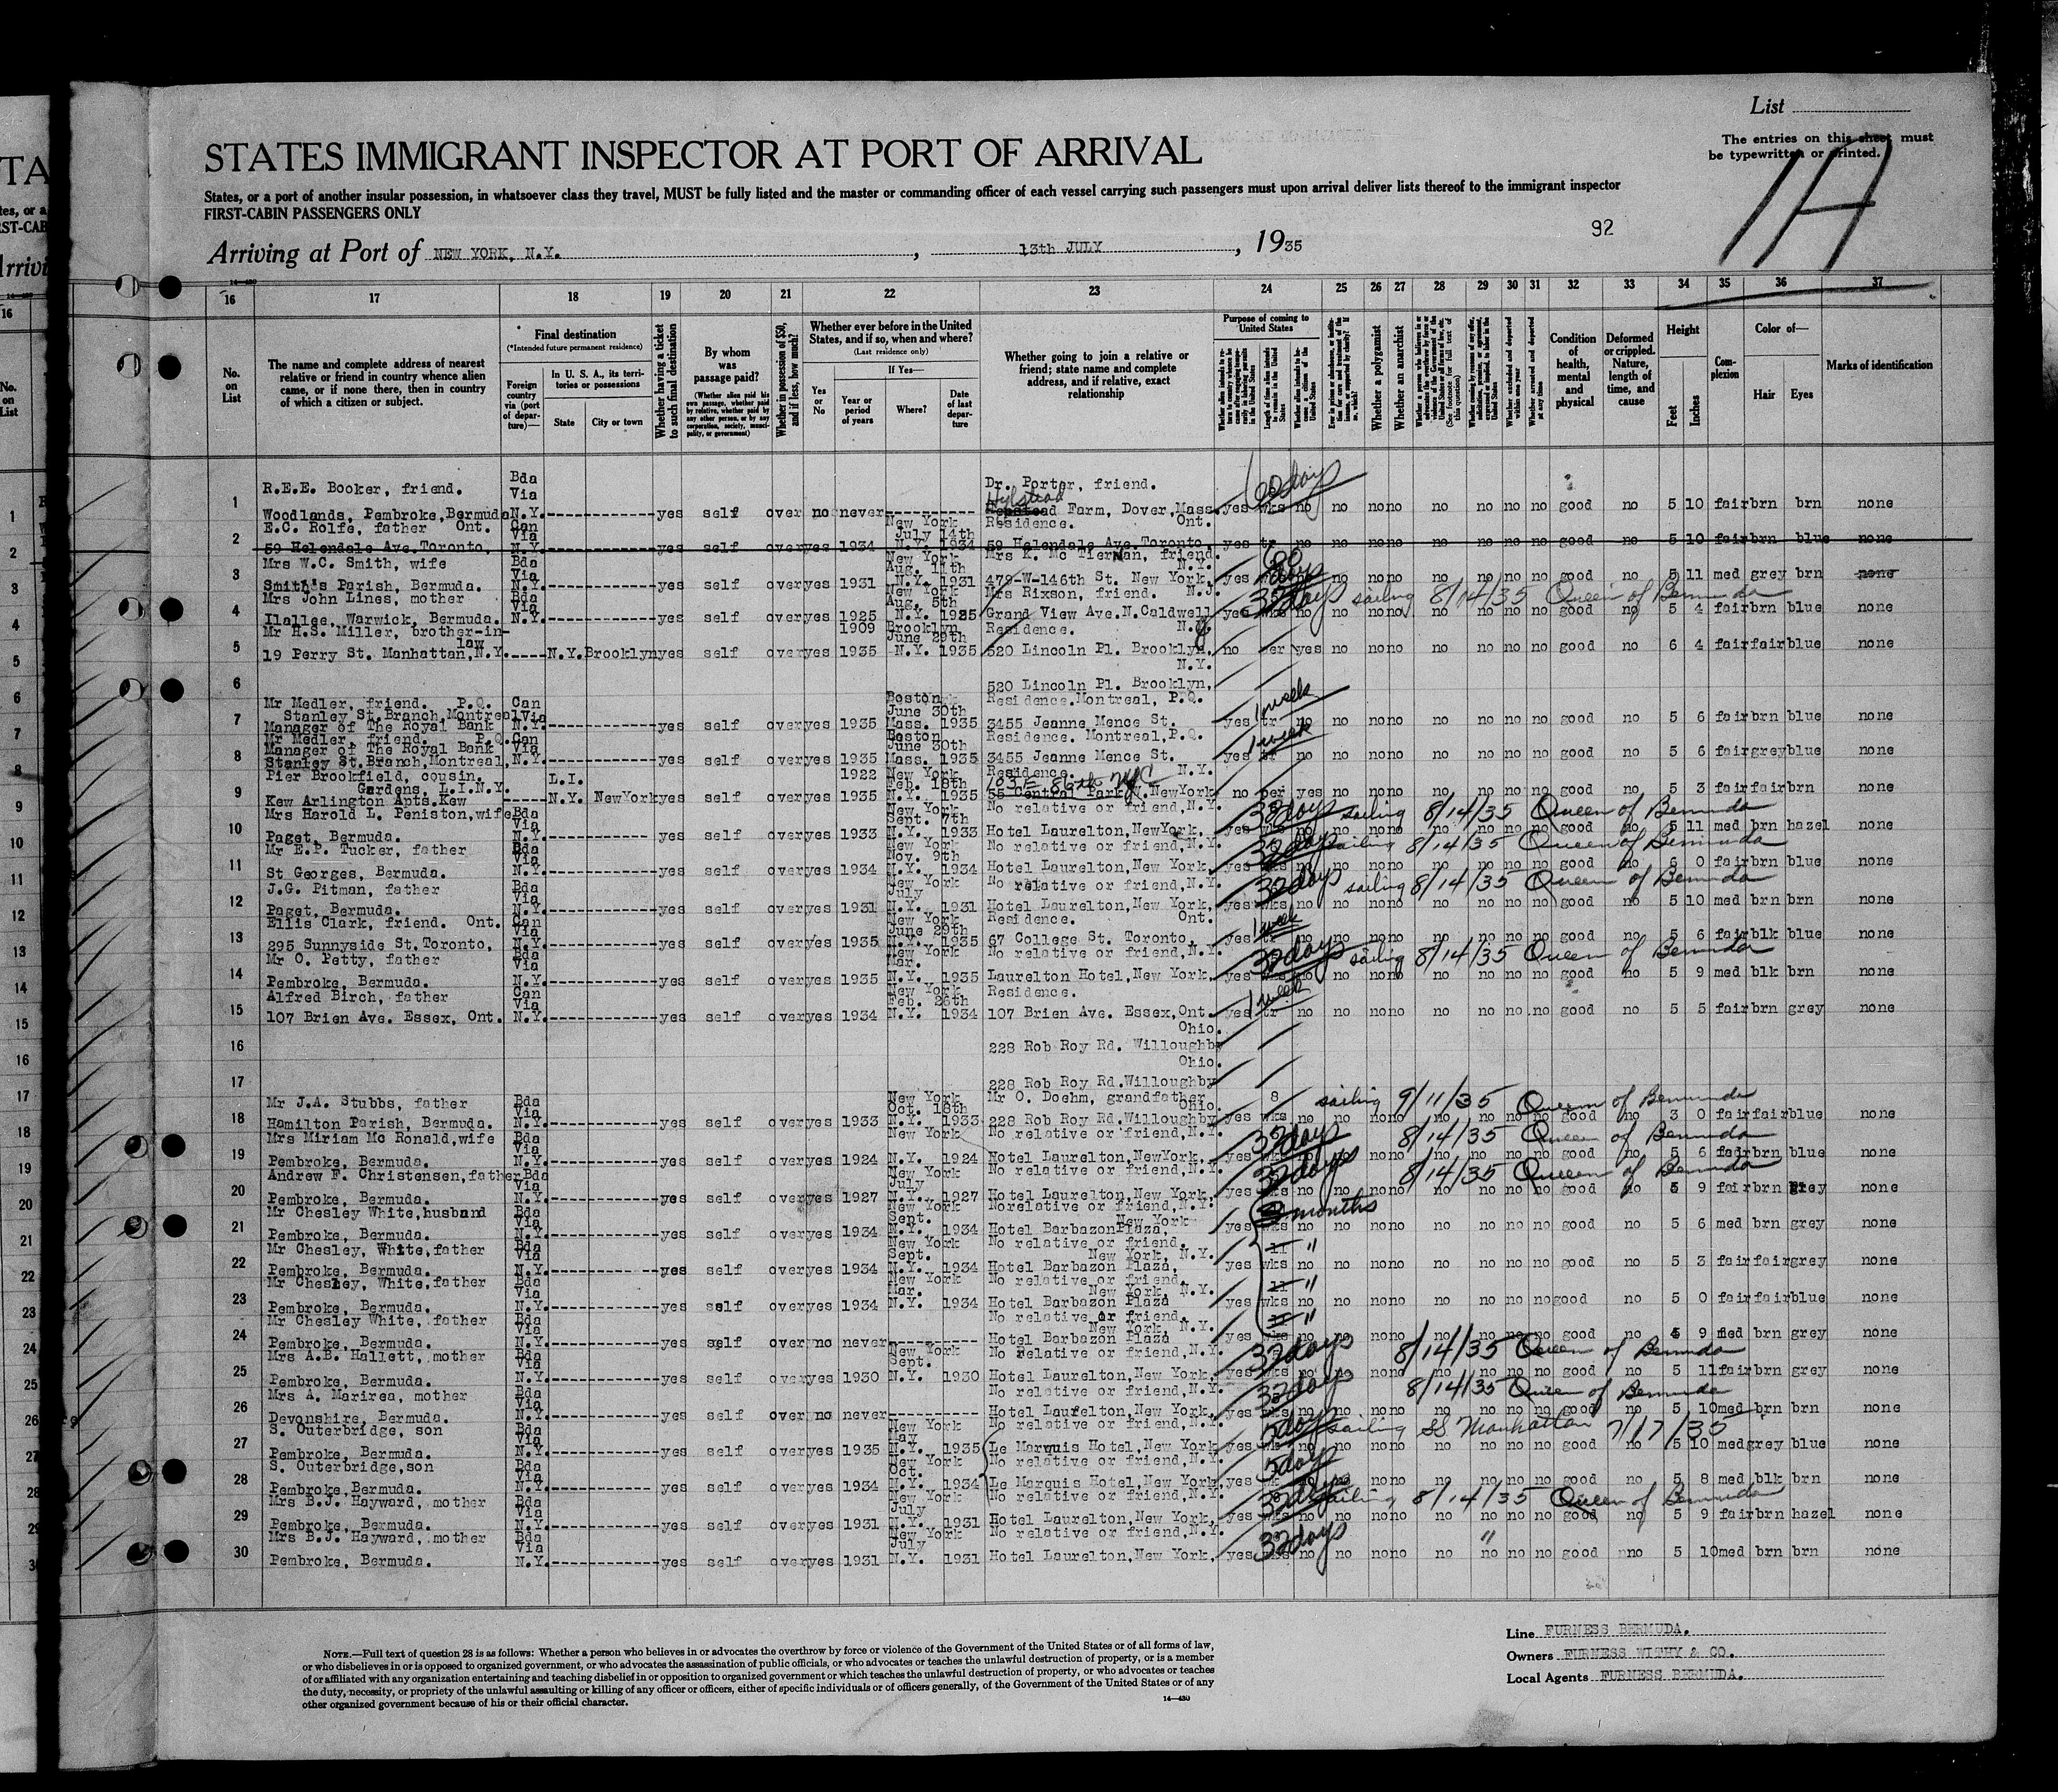 List
The entries on this sheet must
be typewritten or printed.
1A
STATES IMMIGRANT INSPECTOR AT PORT OF ARRIVAL
States, or a port of another insular possession, in whatsoever class they travel, MUST be fully listed and the master or commanding officer of each vessel carrying such passengers must upon arrival deliver lists thereof to the immigrant inspector
FIRST-CABIN PASSENGERS ONLY
92
Arriving at Port of NEW YORK, N.Y. , 13th JULY , 1935
16 17 18 19 20 21 22 23 24 25 26 27 28 29 30 31 32 33 34 35 36 37
No. on List
The name and complete address of nearest relative or friend in country whence alien came, or if none there, then in country of which a citizen or subject.
Final destination
(*Intended future permanent residence)
Foreign country via (port of departure)—
In U. S. A., its territories or possessions
State
City or town
Whether having a ticket to such final destination
By whom was passage paid?
(Whether alien paid his own passage, whether paid by relative, whether paid by any other person, or by any corporation, society, municipality, or government)
Whether in possession of $50, and if less, how much?
Whether ever before in the United States, and if so, when and where?
(Last residence only)
Yes or No
If Yes—
Year or period of years
Where?
Date of last departure
Whether going to join a relative or friend; state name and complete address, and if relative, exact relationship
Purpose of coming to United States
Whether a polygamist
Whether an anarchist
Condition of health, mental and physical
Deformed or crippled. Nature, length of time, and cause
Height
Feet
Inches
Complexion
Color of—
Hair
Eyes
Marks of identification
1 R.E.E. Booker, friend. Woodlands, Pembroke, Bermuda Bda Via N.Y. yes self over no never Dr. Porter, friend. Hylstead Farm, Dover, Mass. 60 days yes wks no no no no no no no no good no 5 10 fair brn brn none
2 E.C. Rolfe, father Ont. 59 Helendale Ave. Toronto, Can Via N.Y. yes self over yes 1934 New York July 14th N.Y. 1934 Residence. Ont. 59 Helendale Ave. Toronto. yes tr no no no no no no no no good no 5 10 fair brn blue none
3 Mrs W.C. Smith, wife Smith's Parish, Bermuda. Bda Via N.Y. yes self over yes 1931 New York Aug. 11th N.Y. 1931 Mrs K. Mc Tiernan, friend. N.Y. 479-W-146th St. New York, 60 days yes no no no no no no no no good no 5 11 med grey brn none
4 Mrs John Lines, mother Ilallee, Warwick, Bermuda. Bda Via N.Y. yes self over yes 1925 New York Aug. 5th N.Y. 1925 Mrs Rixson, friend. N.J. Grand View Ave. N. Caldwell 32 days sailing 8/14/35 Queen of Bermuda yes wks no no no no no no no no good no 5 4 fair brn blue none
5 Mr H.S. Miller, brother-in-law 19 Perry St. Manhattan, N.Y. N.Y. Brooklyn yes self over yes 1909 1935 Brooklyn June 29th N.Y. 1935 Residence. N.Y. 520 Lincoln Pl. Brooklyn, N.Y. no per yes no no no no no no no good no 6 4 fair fair blue none
6 520 Lincoln Pl. Brooklyn,
7 Mr Medler, friend. P.Q. Stanley St. Branch, Montreal Manager of The Royal Bank Can Via N.Y. yes self over yes 1935 Boston June 30th Mass. 1935 Residence. Montreal, P.Q. 3455 Jeanne Mence St. 1 week yes tr no no no no no no no no good no 5 6 fair brn blue none
8 Mr Medler, friend. P.Q. Manager of The Royal Bank Stanley St. Branch, Montreal, Can Via N.Y. yes self over yes 1935 Boston June 30th Mass. 1935 Residence. Montreal, P.Q. 3455 Jeanne Mence St. 1 week yes tr no no no no no no no no good no 5 6 fair grey blue none
9 Pier Brookfield, cousin. Gardens, L.I.N.Y. Kew Arlington Apts. Kew L.I. N.Y. New York yes self over yes 1922 1935 New York Feb. 18th N.Y. 1935 Residence. N.Y. 103 E 86th NYC 55 Central Park W. New York no per yes no no no no no no no good no 5 3 fair fair brn none
10 Mrs Harold L. Peniston, wife Paget, Bermuda. Bda Via N.Y. yes self over yes 1933 New York Sept. 7th N.Y. 1933 No relative or friend, N.Y. Hotel Laurelton, New York, 32 days sailing 8/14/35 Queen of Bermuda yes wks no no no no no no no no good no 5 11 med brn hazel none
11 Mr E.P. Tucker, father St Georges, Bermuda. Bda Via N.Y. yes self over yes 1934 New York Nov. 9th N.Y. 1934 No relative or friend, N.Y. Hotel Laurelton, New York 32 days sailing 8/14/35 Queen of Bermuda yes wks no no no no no no no no good no 6 0 fair brn blue none
12 J.G. Pitman, father Paget, Bermuda. Bda Via N.Y. yes self over yes 1931 New York July N.Y. 1931 No relative or friend, N.Y. Hotel Laurelton, New York, 32 days sailing 8/14/35 Queen of Bermuda yes wks no no no no no no no no good no 5 10 med brn brn none
13 Ellis Clark, friend. Ont. 295 Sunnyside St. Toronto, Can Via N.Y. yes self over yes 1935 New York June 29th N.Y. 1935 Residence. Ont. 67 College St. Toronto, 1 week yes tr no no no no no no no no good no 5 6 fair blk blue none
14 Mr O. Petty, father Pembroke, Bermuda. Bda Via N.Y. yes self over yes 1935 New York Mar. N.Y. 1935 No relative or friend, N.Y. Laurelton Hotel, New York 32 days sailing 8/14/35 Queen of Bermuda yes wks no no no no no no no no good no 5 9 med blk brn none
15 Alfred Birch, father 107 Brien Ave. Essex, Ont. Can Via N.Y. yes self over yes 1934 New York Feb. 26th N.Y. 1934 Residence. 107 Brien Ave. Essex, Ont. 1 week yes tr no no no no no no no no good no 5 5 fair brn grey none
16 Ohio. 228 Rob Roy Rd. Willoughby
17 Ohio. 228 Rob Roy Rd. Willoughby
18 Mr J.A. Stubbs, father Hamilton Parish, Bermuda. Bda Via N.Y. yes self over yes 1933 New York Oct. 18th N.Y. 1933 Mr O. Doehm, grandfather Ohio. 228 Rob Roy Rd. Willoughby 8 sailing 9/11/35 Queen of Bermuda yes wks no no no no no no no no good no 3 0 fair fair blue none
19 Mrs Miriam Mc Ronald, wife Pembroke, Bermuda. Bda Via N.Y. yes self over yes 1924 New York N.Y. 1924 No relative or friend, N.Y. Hotel Laurelton, New York, 32 days 8/14/35 Queen of Bermuda yes wks no no no no no no no no good no 5 6 fair brn blue none
20 Andrew F. Christensen, father Pembroke, Bermuda. Bda Via N.Y. yes self over yes 1927 New York July N.Y. 1927 No relative or friend, N.Y. Hotel Laurelton, New York, 32 days 8/14/35 Queen of Bermuda yes wks no no no no no no no no good no 5 9 fair brn grey none
21 Mr Chesley White, husband Pembroke, Bermuda. Bda Via N.Y. yes self over yes 1934 New York Sept. N.Y. 1934 No relative or friend, N.Y. New York Hotel Barbazon Plaza, 3 months yes wks no no no no no no no no good no 5 6 med brn grey none
22 Mr Chesley, White, father Pembroke, Bermuda. Bda Via N.Y. yes self over yes 1934 New York Sept. N.Y. 1934 No relative or friend. New York, N.Y. Hotel Barbazon Plaza, " yes wks no no no no no no no no good no 5 3 fair fair grey none
23 Mr Chesley, White, father Pembroke, Bermuda. Bda Via N.Y. yes self over yes 1934 New York Mar. N.Y. 1934 No relative or friend. New York, N.Y. Hotel Barbazon Plaza " yes wks no no no no no no no no good no 5 0 fair fair blue none
24 Mr Chesley White, father Pembroke, Bermuda. Bda Via N.Y. yes self over no never No relative or friend. New York, N.Y. Hotel Barbazon Plaza " yes wks no no no no no no no no good no 4 9 med brn grey none
25 Mrs A.B. Hallett, mother Pembroke, Bermuda. Bda Via N.Y. yes self over yes 1930 New York Sept. N.Y. 1930 No relative or friend, N.Y. Hotel Laurelton, New York, 32 days 8/14/35 Queen of Bermuda yes wks no no no no no no no no good no 5 11 fair brn grey none
26 Mrs A. Marirea, mother Devonshire, Bermuda. Bda Via N.Y. yes self over no never No relative or friend, N.Y. Hotel Laurelton, New York, 32 days 8/14/35 Queen of Bermuda yes wks no no no no no no no no good no 5 10 med brn brn none
27 S. Outerbridge, son Pembroke, Bermuda. Bda Via N.Y. yes self over yes 1935 New York May N.Y. 1935 No relative or friend, N.Y. Le Marquis Hotel, New York 5 days sailing SS Manhattan 7/17/35 yes wks no no no no no no no no good no 5 10 med grey blue none
28 S. Outerbridge, son Pembroke, Bermuda. Bda Via N.Y. yes self over yes 1934 New York Oct. N.Y. 1934 No relative or friend, N.Y. Le Marquis Hotel, New York, 5 days yes wk no no no no no no no no good no 5 8 med blk brn none
29 Mrs B.J. Hayward, mother Pembroke, Bermuda. Bda Via N.Y. yes self over yes 1931 New York July N.Y. 1931 No relative or friend, N.Y. Hotel Laurelton, New York, 32 days sailing 8/14/35 Queen of Bermuda yes wks no no no no no no no no good no 5 9 fair brn hazel none
30 Mrs B.J. Hayward, mother Pembroke, Bermuda. Bda Via N.Y. yes self over yes 1931 New York July N.Y. 1931 No relative or friend, N.Y. Hotel Laurelton, New York, 32 days " yes wks no no no no no no no no good no 5 10 med brn brn none
NOTE.—Full text of question 28 is as follows: Whether a person who believes in or advocates the overthrow by force or violence of the Government of the United States or of all forms of law,
or who disbelieves in or is opposed to organized government, or who advocates the assassination of public officials, or who advocates or teaches the unlawful destruction of property, or is a member
of or affiliated with any organization entertaining and teaching disbelief in or opposition to organized government or which teaches the unlawful destruction of property, or who advocates or teaches
the duty, necessity, or propriety of the unlawful assaulting or killing of any officer or officers, either of specific individuals or of officers generally, of the Government of the United States or of any
other organized government because of his or their official character.
14—430
Line FURNESS BERMUDA.
Owners FURNESS WITHY & CO.
Local Agents FURNESS BERMUDA.